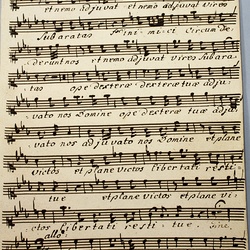 et nemo adjuvat et nemo adjuvat vires
Subaratas inimici Circumde
derunt nos et nemo adjuvat vires Subara
tas ope dexterae dexterae tuae adju
vato nos Domine ope dexterae tuae adju
vato nos adjuvato nos Domine et plane
Victos et plane Victos libertati resti
tue et plane Victos et plane vi
ctos libertati restitue.
allo: